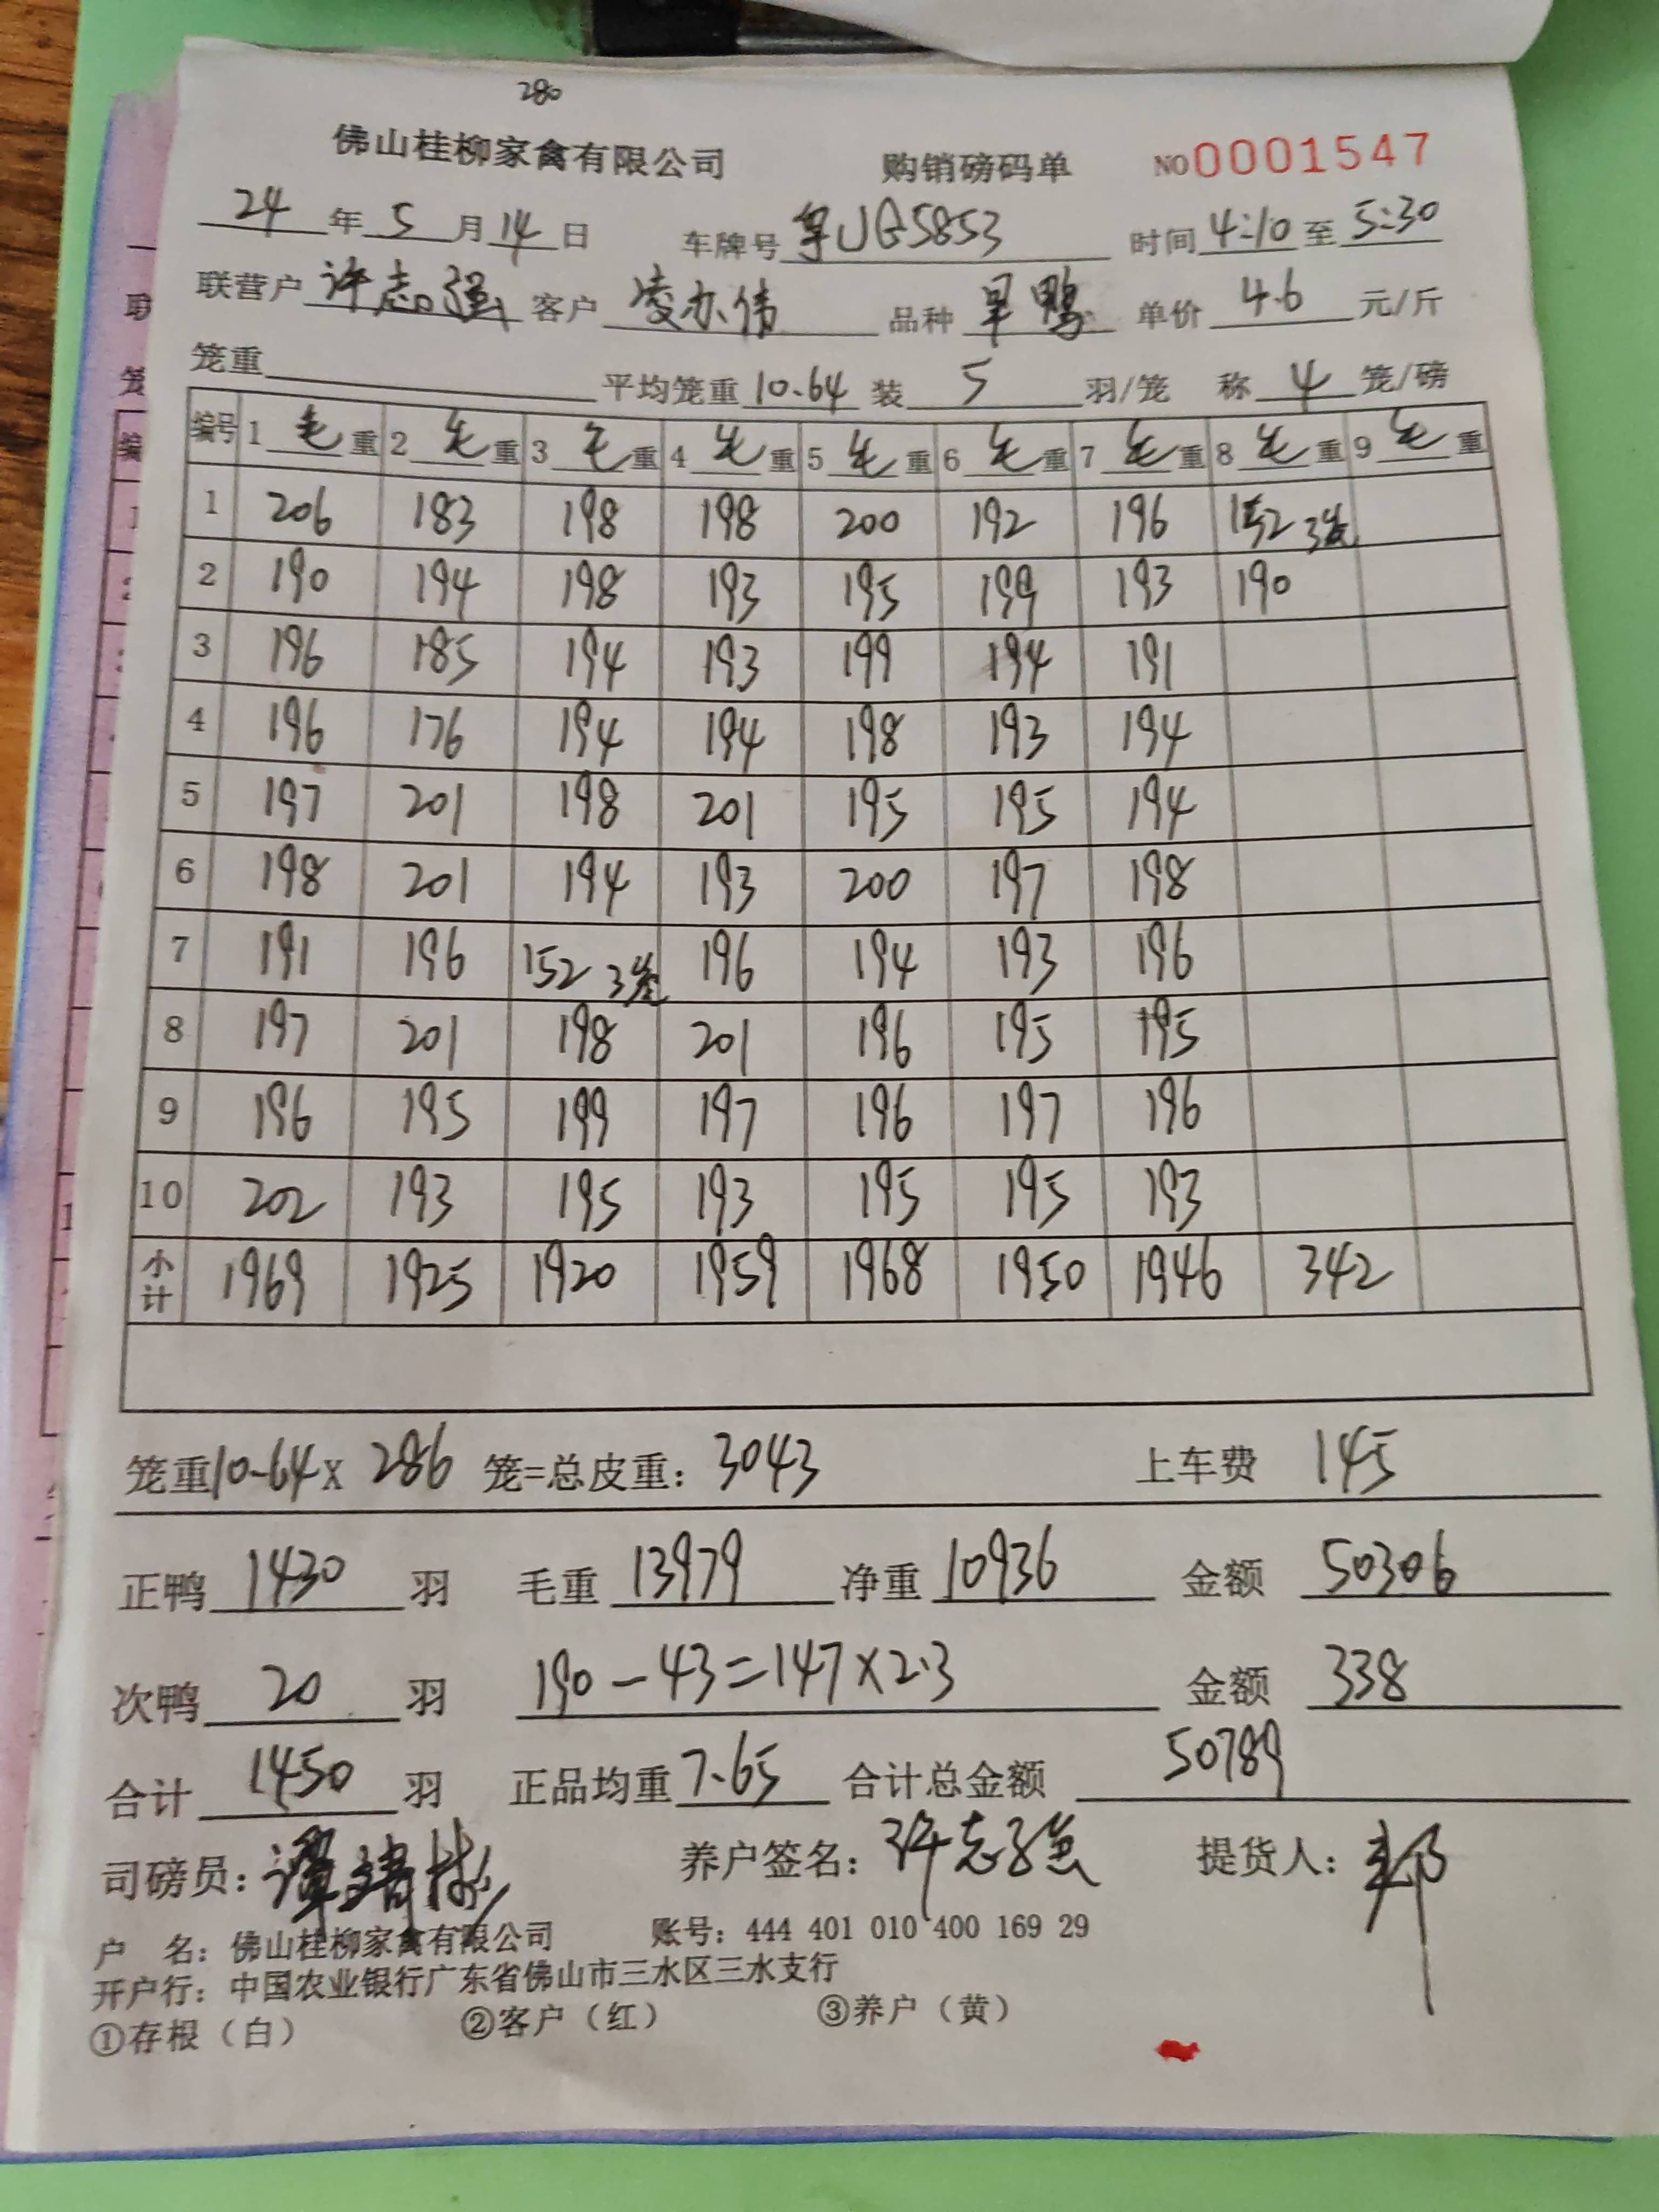 280
佛山桂柳家禽有限公司 购销磅码单 NO 0001547
24 年 5 月 14 日 车牌号 粤JG5853 时间 4:10 至 5:30
联营户 许志强 客户 凌亦伟 品种 旱鸭 单价 4.6 元/斤
笼重 平均笼重 10.64 装 5 羽/笼 称 4 笼/磅
编号 1 毛 重 2 毛 重 3 毛 重 4 毛 重 5 毛 重 6 毛 重 7 毛 重 8 毛 重 9 毛 重
1 206 183 198 198 200 192 196 152 3笼
2 190 194 198 193 195 199 193 190
3 196 185 194 193 199 194 191
4 196 176 194 194 198 193 194
5 197 201 198 201 195 195 194
6 198 201 194 193 200 197 198
7 191 196 152 3笼 196 194 193 196
8 197 201 198 201 196 195 195
9 196 195 199 197 196 197 196
10 202 193 195 193 195 195 193
小计 1969 1925 1920 1959 1968 1950 1946 342
笼重10.64X 286 笼=总皮重: 3043 上车费 145
正鸭 1430 羽 毛重 13979 净重 10936 金额 50306
次鸭 20 羽 190-43=147×2.3 金额 338
合计 1450 羽 正品均重 7.65 合计总金额 50789
司磅员: 养户签名: 许志强 提货人:
户 名: 佛山桂柳家禽有限公司 账号: 444 401 010 400 169 29
开户行: 中国农业银行广东省佛山市三水区三水支行
①存根（白） ②客户（红） ③养户（黄）